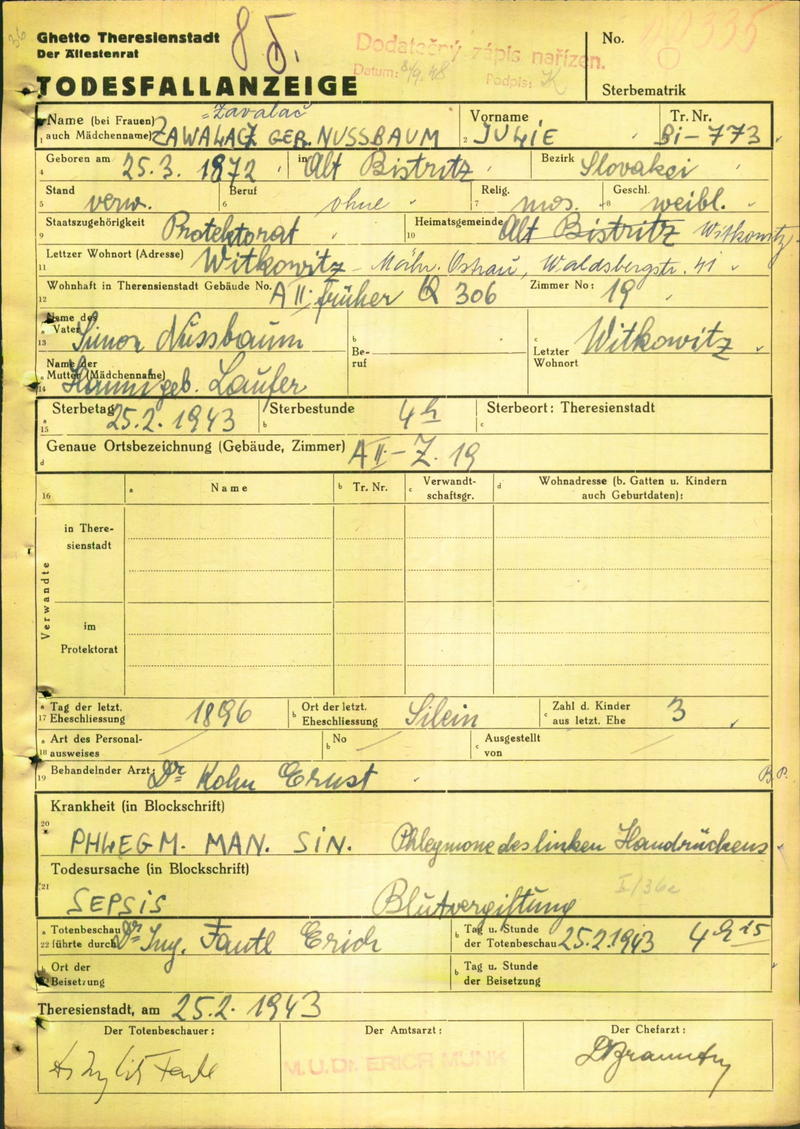 Ghetto Theresienstadt
Der Ältestenrat
85.
Dodatečný zápis nařízen.
Datum: 8/9. 48 Podpis: K
No.
TODESFALLANZEIGE
Sterbematrik
= Zavalač
Name (bei Frauen auch Mädchenname) ZAWALACZ GEB. NUSSBAUM
Vorname JULIE
Tr. Nr. Bi-773
Geboren am 25.3. 1872 in Alt Bistritz Bezirk Slovakei
Stand verw. Beruf ohne Relig. mos. Geschl. weibl.
Staatszugehörigkeit Protektorat Heimatsgemeinde Alt Bistritz Witkowitz
Letzter Wohnort (Adresse) Witkowitz - Mähr. Ostrau, Waldsbergstr. 41
Wohnhaft in Theresienstadt Gebäude No. A II früher Q 306 Zimmer No: 19
Name des Vaters Simon Nussbaum Be-ruf Letzter Wohnort Witkowitz
Name der Mutter (Mädchenname) geb. Laufer
Sterbetag 25.2. 1943 Sterbestunde 4h Sterbeort: Theresienstadt
Genaue Ortsbezeichnung (Gebäude, Zimmer) A II - Z. 19
16 a Name b Tr. Nr. c Verwandt-schaftsgr. d Wohnadresse (b. Gatten u. Kindern auch Geburtdaten):
Verwandte
in There-
sienstadt
im
Protektorat
17 a Tag der letzt. Eheschliessung 1896 b Ort der letzt. Eheschliessung Silein c Zahl d. Kinder aus letzt. Ehe 3
18 a Art des Personal-ausweises b No c Ausgestellt von
19 Behandelnder Arzt: Dr Kohn Ernst
B.P.
Krankheit (in Blockschrift)
20 PHLEGM. MAN. SIN. Phlegmone des linken Handrückens
Todesursache (in Blockschrift)
21 SEPSIS Blutvergiftung I/36a
22 a Totenbeschau führte durch Dr Ing. Fantl Erich b Tag u. Stunde der Totenbeschau 25.2.1943 4h 15
Ort der Beisetzung b Tag u. Stunde der Beisetzung
Theresienstadt, am 25.2. 1943
Der Totenbeschauer: Der Amtsarzt: Der Chefarzt:
M.U.Dr. ERICH MUNK